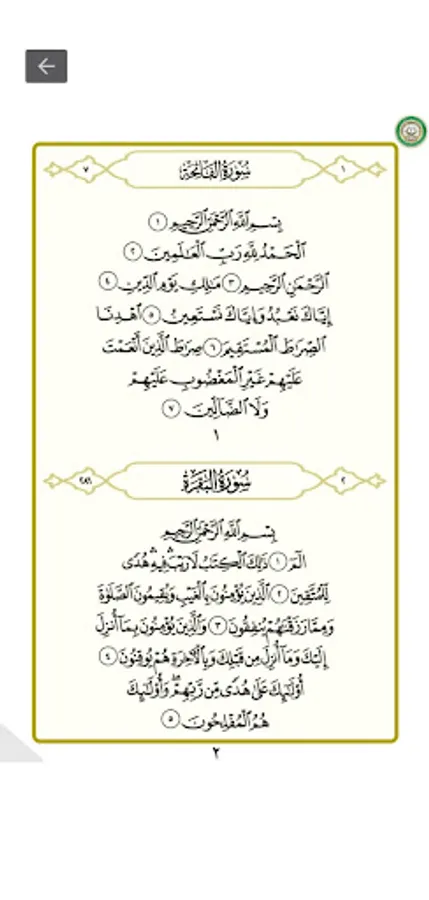 ٧ سُورَةُ الْفَاتِحَةِ ١
بِسْمِ اللَّهِ الرَّحْمَٰنِ الرَّحِيمِ ١
الْحَمْدُ لِلَّهِ رَبِّ الْعَالَمِينَ ٢
الرَّحْمَٰنِ الرَّحِيمِ ٣ مَالِكِ يَوْمِ الدِّينِ ٤
إِيَّاكَ نَعْبُدُ وَإِيَّاكَ نَسْتَعِينُ ٥ اهْدِنَا
الصِّرَاطَ الْمُسْتَقِيمَ ٦ صِرَاطَ الَّذِينَ أَنْعَمْتَ
عَلَيْهِمْ غَيْرِ الْمَغْضُوبِ عَلَيْهِمْ
وَلَا الضَّالِّينَ ٧
١
٢٨٦ سُورَةُ الْبَقَرَةِ ٢
بِسْمِ اللَّهِ الرَّحْمَٰنِ الرَّحِيمِ
الٓمٓ ١ ذَٰلِكَ الْكِتَابُ لَا رَيْبَ ۛ فِيهِ ۛ هُدًى
لِّلْمُتَّقِينَ ٢ الَّذِينَ يُؤْمِنُونَ بِالْغَيْبِ وَيُقِيمُونَ الصَّلَاةَ
وَمِمَّا رَزَقْنَاهُمْ يُنفِقُونَ ٣ وَالَّذِينَ يُؤْمِنُونَ بِمَا أُنزِلَ
إِلَيْكَ وَمَا أُنزِلَ مِن قَبْلِكَ وَبِالْآخِرَةِ هُمْ يُوقِنُونَ ٤
أُولَٰئِكَ عَلَىٰ هُدًى مِّن رَّبِّهِمْ ۖ وَأُولَٰئِكَ
هُمُ الْمُفْلِحُونَ ٥
٢